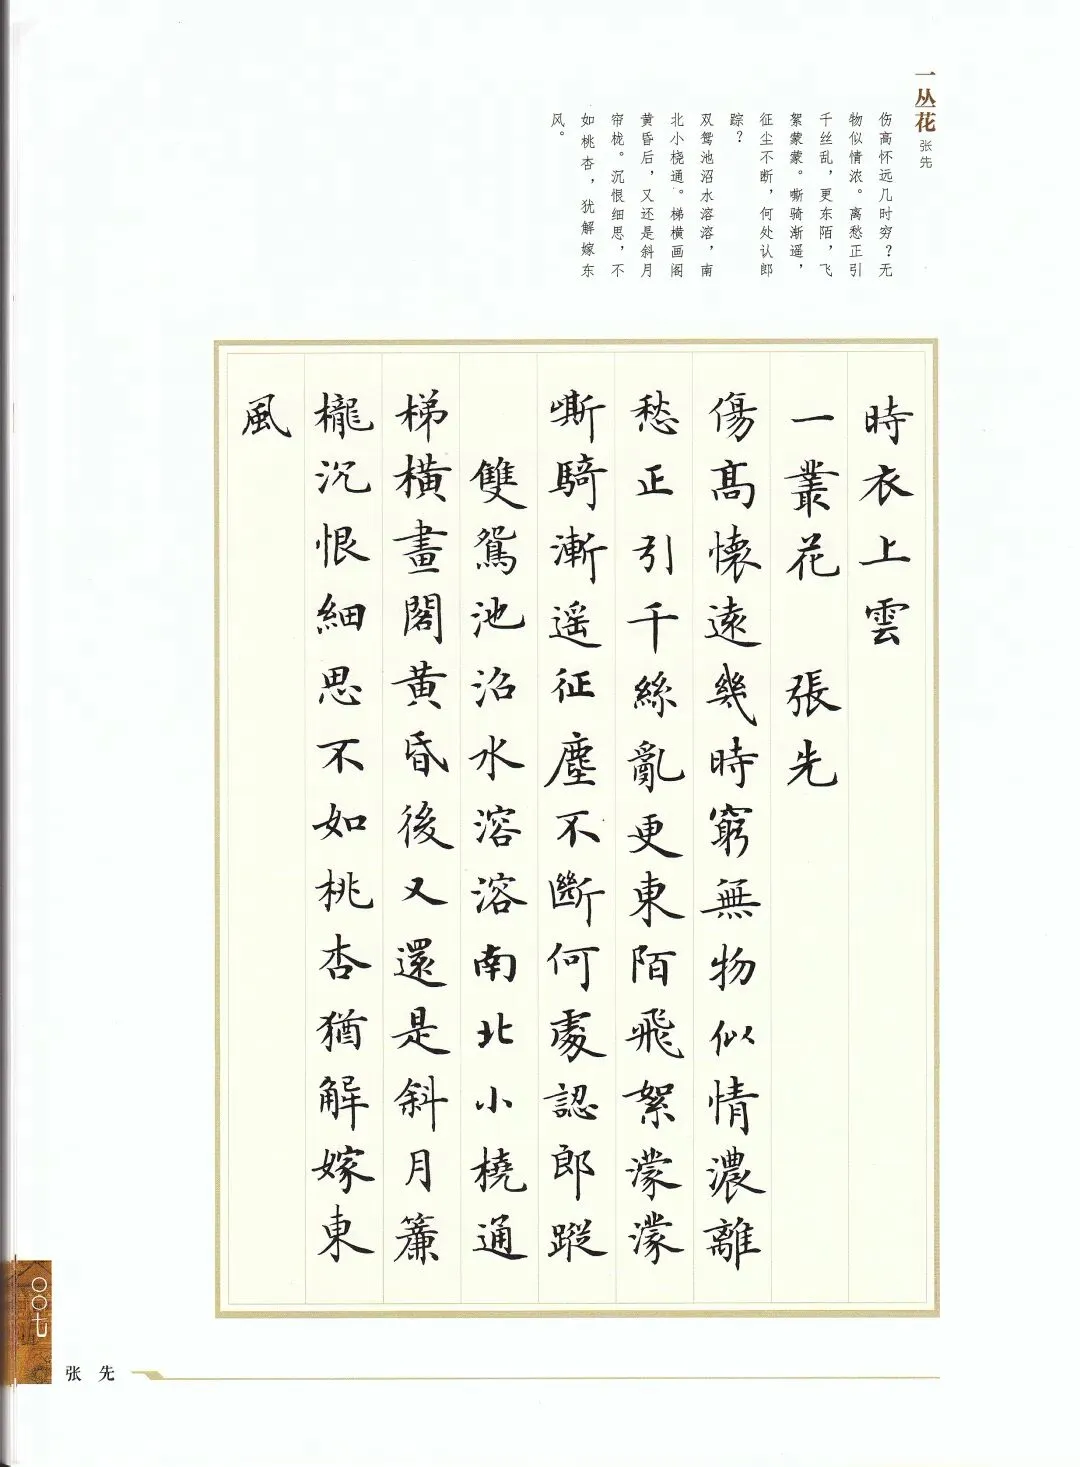 一丛花
张先
伤高怀远几时穷？无
物似情浓。离愁正引
千丝乱，更东陌，飞
絮蒙蒙。嘶骑渐遥，
征尘不断，何处认郎
踪？
双鸳池沼水溶溶，南
北小桡通。梯横画阁
黄昏后，又还是斜月
帘栊。沉恨细思，不
如桃杏，犹解嫁东
风。
時衣上雲
一叢花　張先
傷高懷遠幾時窮無物似情濃離
愁正引千絲亂更東陌飛絮濛濛
嘶騎漸遥征塵不斷何處認郎蹤
雙鴛池沼水溶溶南北小橈通
梯横畫閣黄昏後又還是斜月簾
櫳沉恨細思不如桃杏猶解嫁東
風
〇〇七
张先